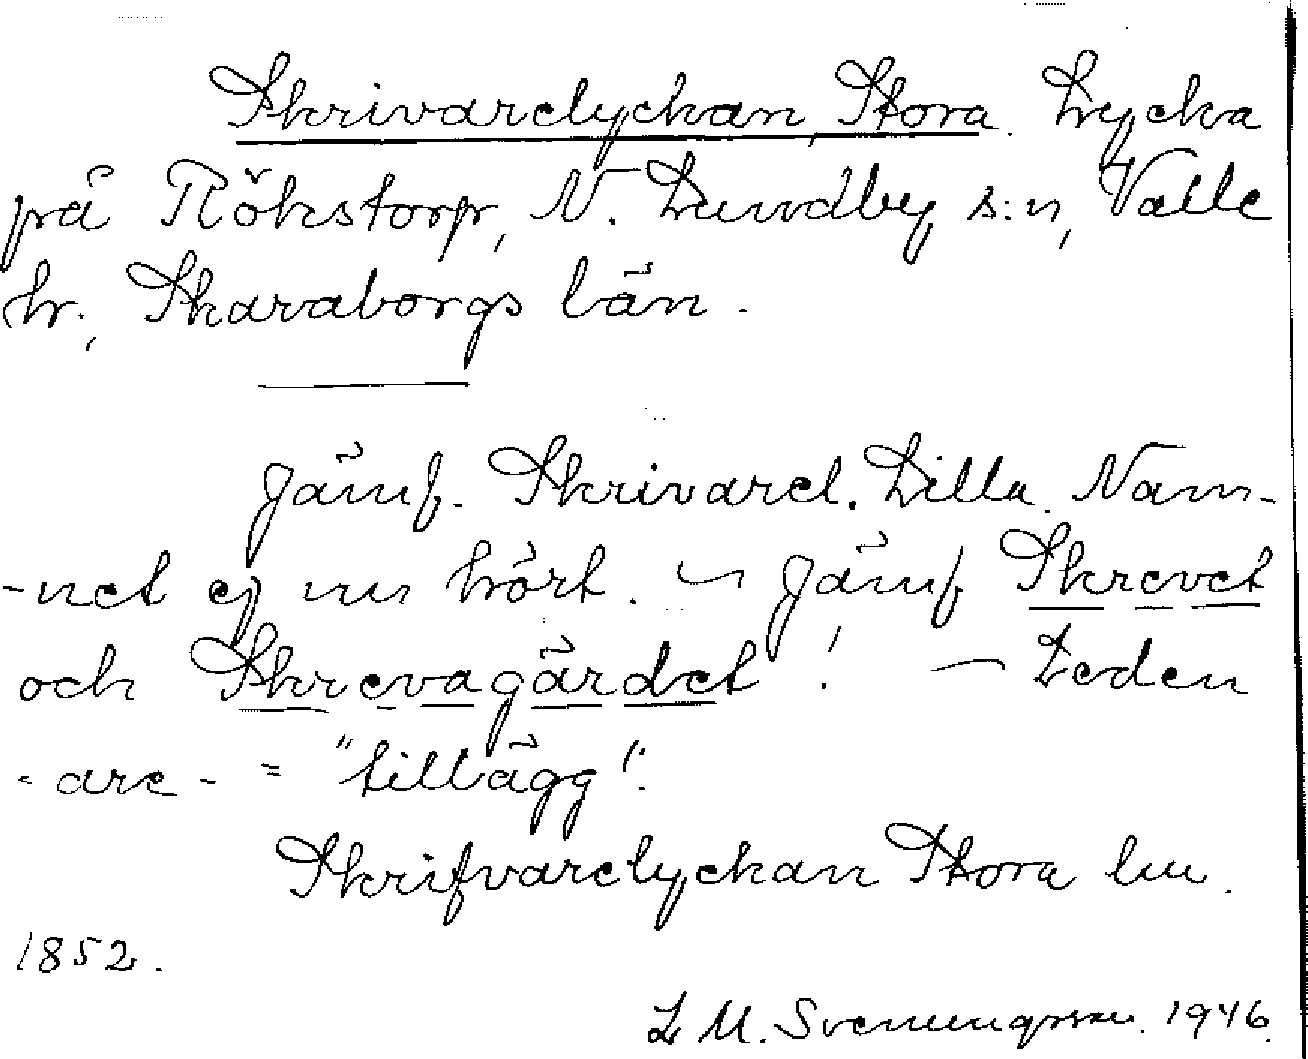 Skrivarelyckan, Stora. Lycka
på Rökstorp, N. Lundby s:n, Valle
hr., Skaraborgs län.
Jämf. Skrivarel. Lilla. Nam-
-net ej nu hört. — Jämf Skrevet
och Skrevagärdet! — Leden
-are- = "tillägg".
Skrifvarelyckan Stora lm.
1852.
L M. Svenungsson. 1946.